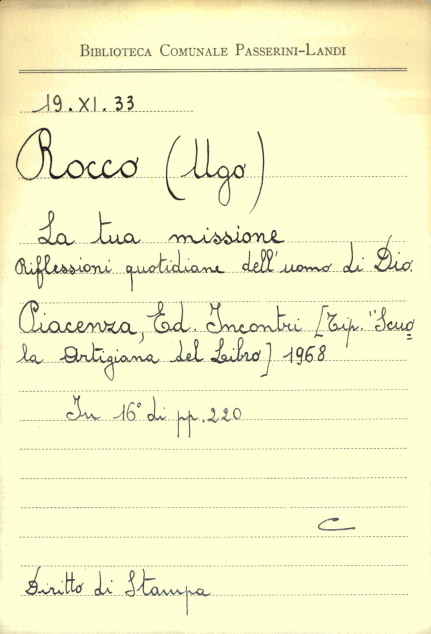 BIBLIOTECA COMUNALE PASSERINI-LANDI
19.XI.33
Rocco (Ugo)
La tua missione
Riflessioni quotidiane dell'uomo di Dio.
Piacenza, Ed. Incontri [Tip. "Scuo
la Artigiana del Libro] 1968
In 16° di pp. 220
C
Diritto di Stampa